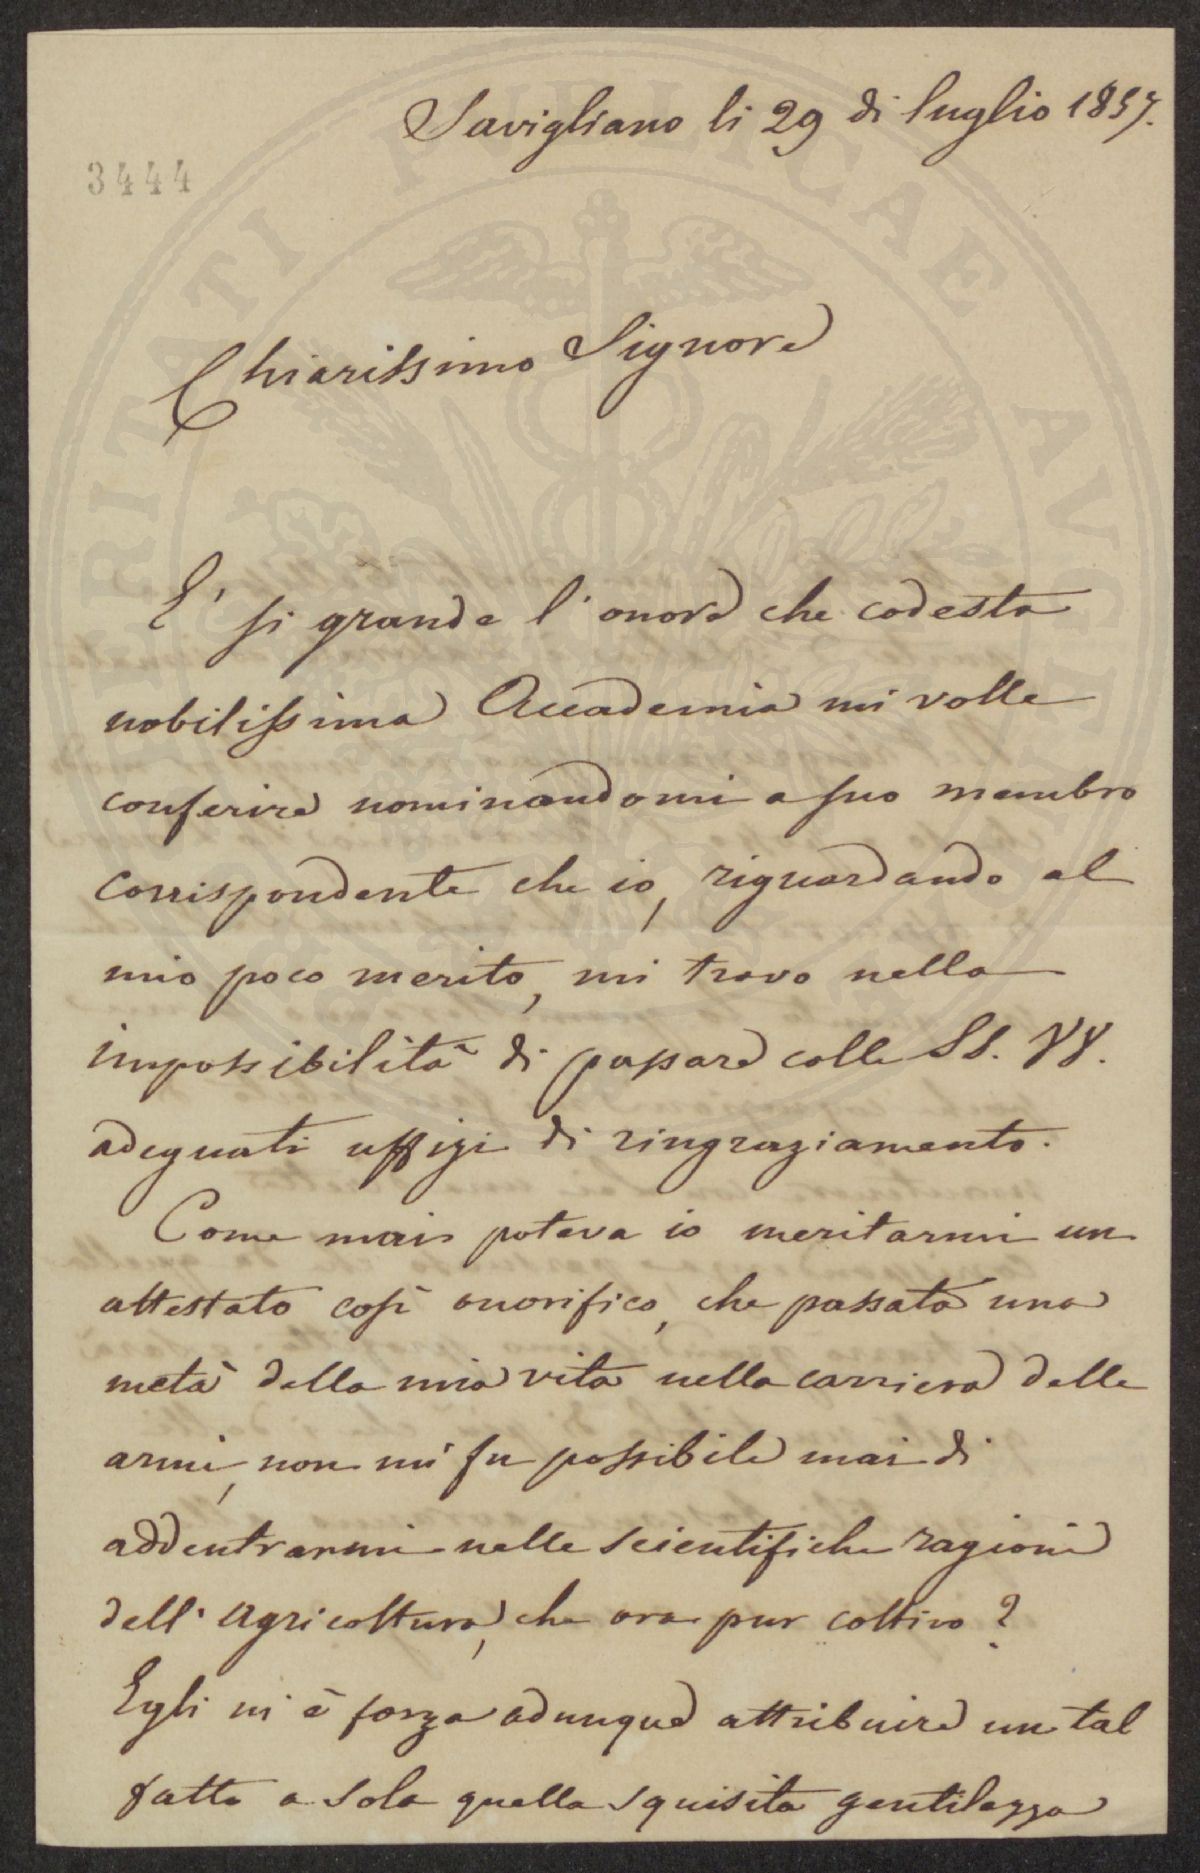 Savigliano li 29 di luglio 1857.
3444
Chiarissimo Signore
E' si grande l'onore che codesta
nobilissima Accademia mi volle
conferire nominandomi a suo membro
corrispondente che io, riguardando al
mio poco merito, mi trovo nella
impossibilità di passare colle SS. VV.
adeguati uffizi di ringraziamento.
Come mai poteva io meritarmi un
attestato così onorifico, che passata una
metà della mia vita nella carriera delle
armi, non mi fu possibile mai di
addentrarmi nelle scientifiche ragioni
dell'agricoltura, che ora pur coltivo?
Egli mi è forza adunque attribuire un tal
fatto a sola quella squisita gentilezza